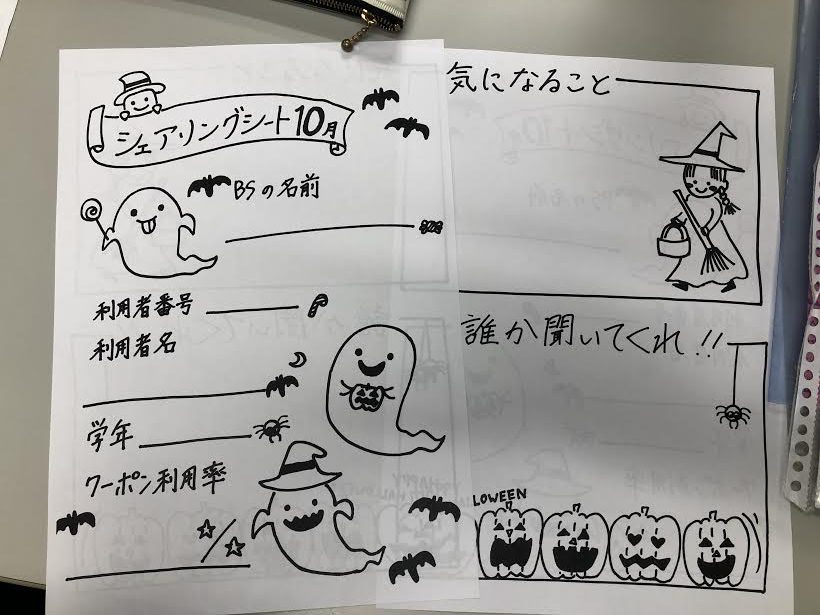 シェアリングシート10月
BSの名前
利用者番号
利用者名
学年
クーポン利用率
気になること
誰か聞いてくれ!!
LOWEEN